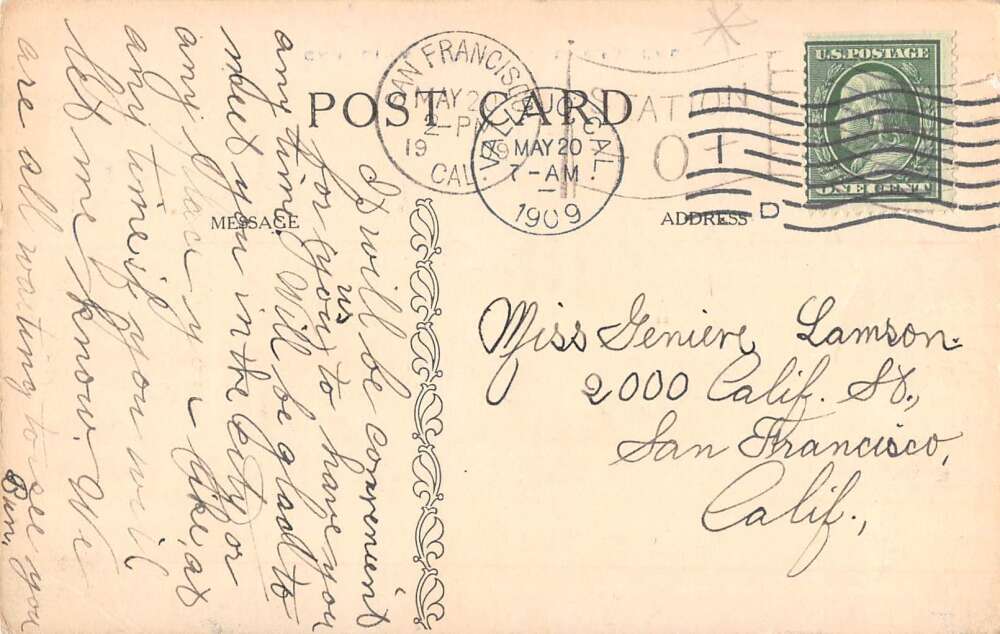 POST CARD
MESSAGE
ADDRESS
SAN FRANCISCO
MAY 20
2-PM
19 09
CAL.
VALLEJO, CAL.
MAY 20
7-AM
1909
STATION
O
1
D
U.S. POSTAGE
ONE CENT
Miss Genieve Lamson.
2000 Calif. St.,
San Francisco,
Calif.,
It will be convenient
us
for you to have you
any time. Will be glad to
meet you in the city or
any place you like, at
any time if you will
let me know. We
are all waiting to see you
Ben.